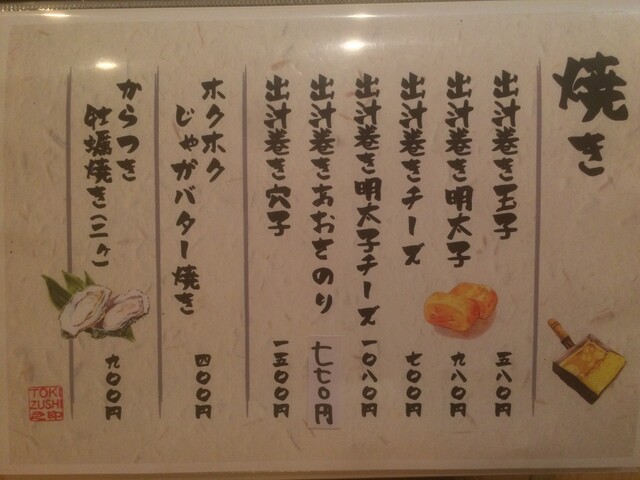 焼き
出汁巻き玉子 五八〇円
出汁巻き明太子 九八〇円
出汁巻きチーズ 七〇〇円
出汁巻き明太子チーズ 一〇八〇円
出汁巻きあおさのり 七七〇円
出汁巻き穴子 一五〇〇円
ホクホク
じゃがバター焼き 四〇〇円
からつき
牡蠣焼き(二ヶ) 九〇〇円
TOKI
ZUSHI